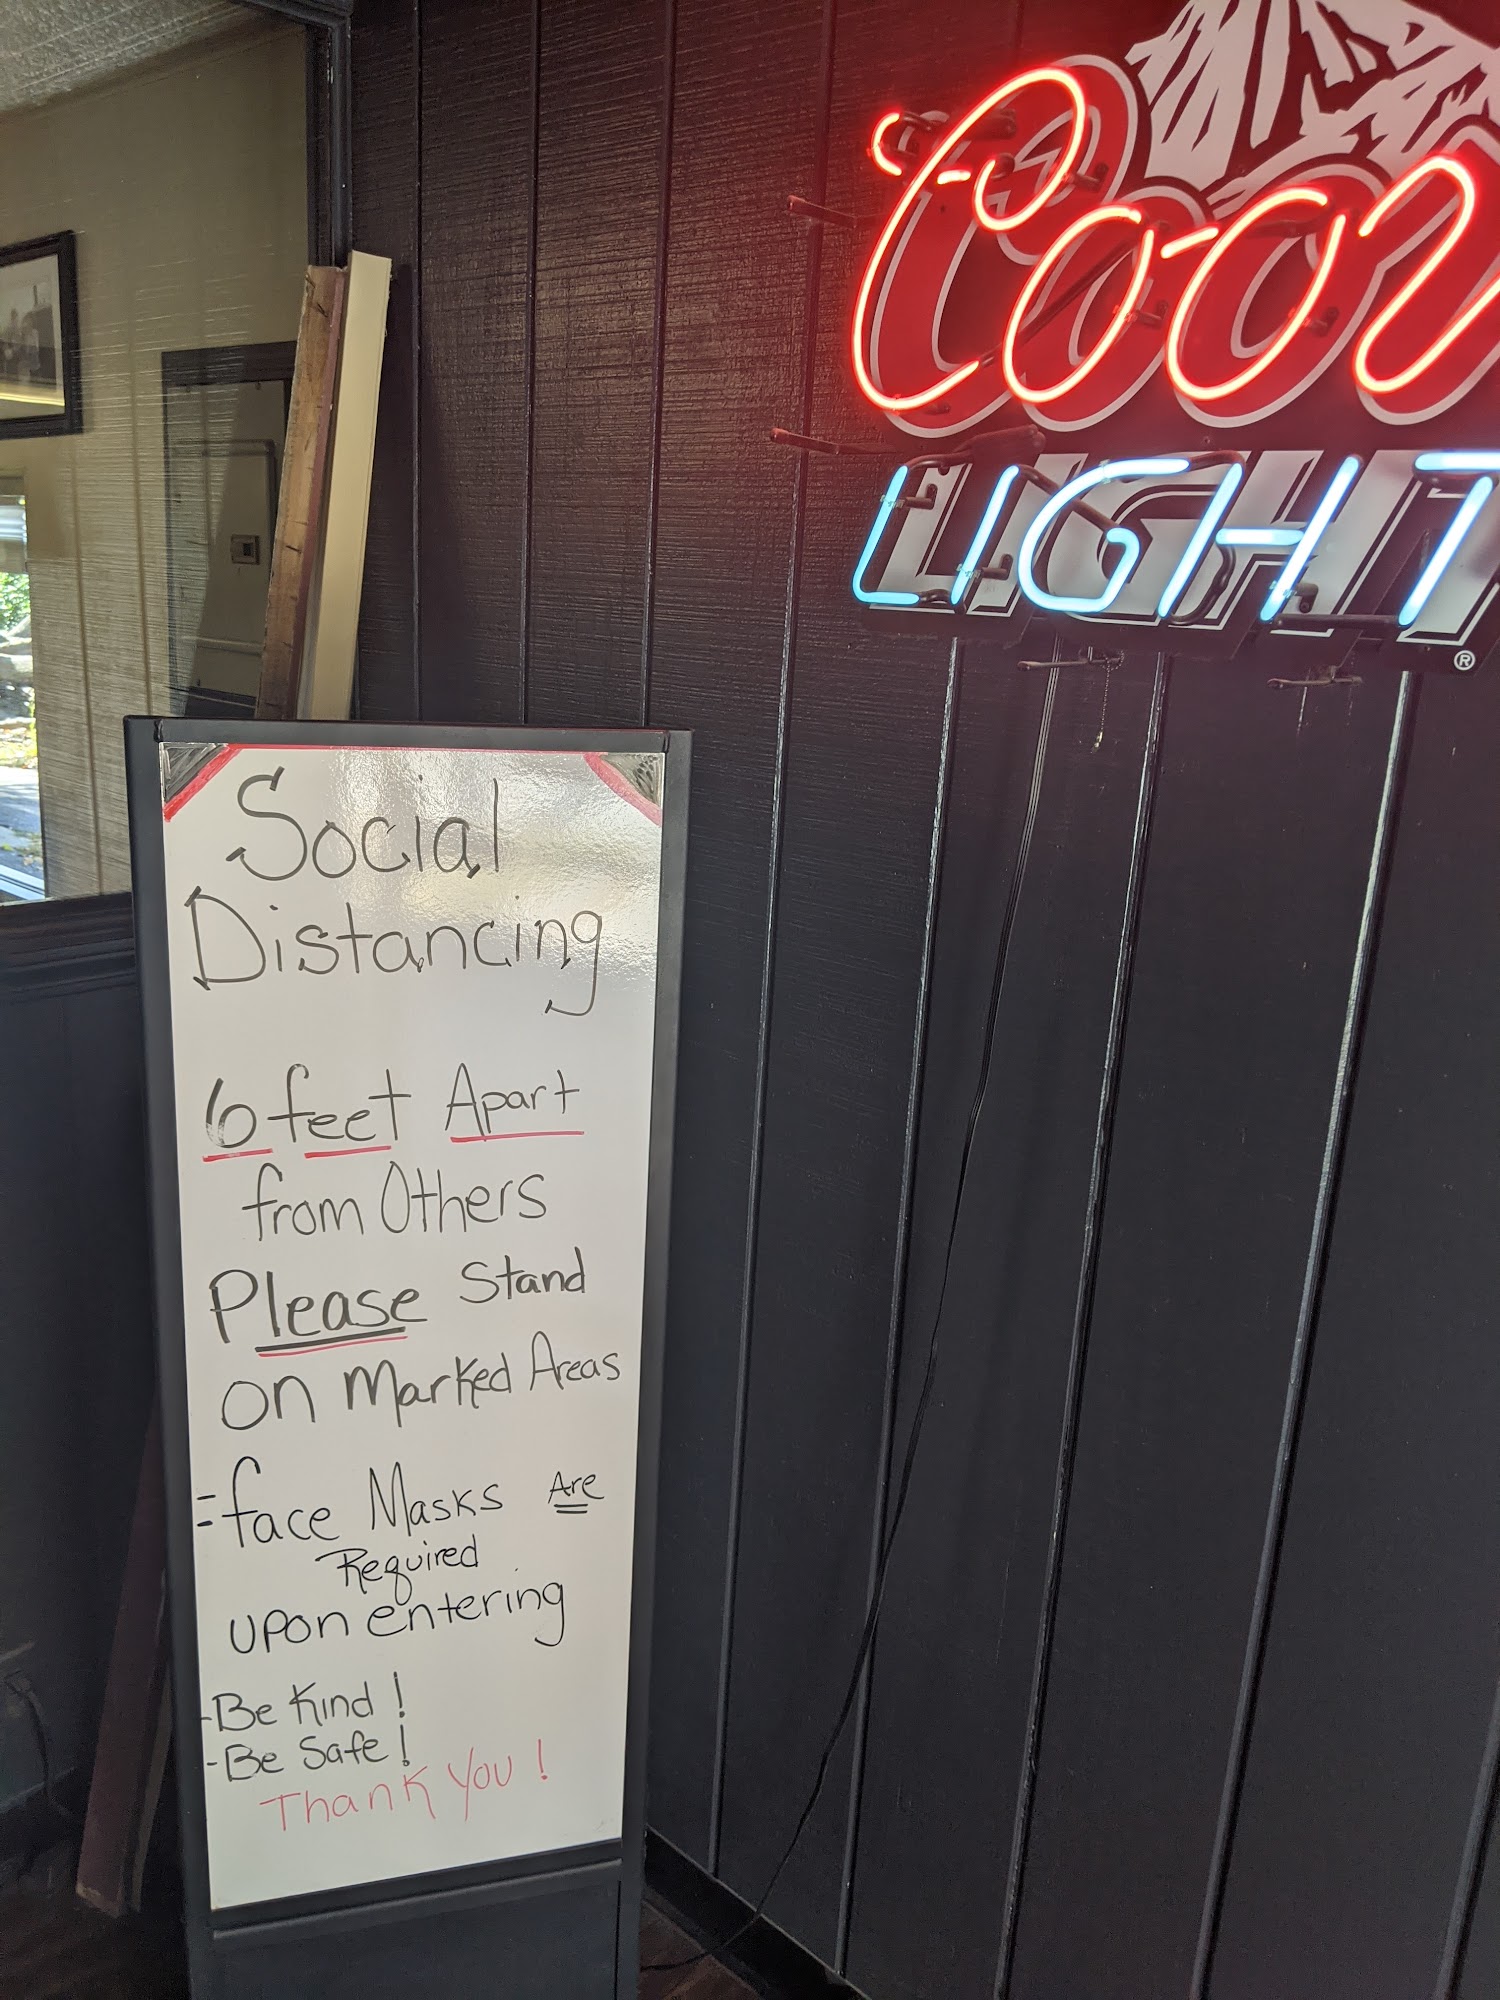 Coor
LIGHT
®
Social
Distancing
6 feet Apart
from Others
Please Stand
on Marked Areas
= face Masks Are
Required
upon entering
- Be Kind!
- Be Safe!
Thank You!